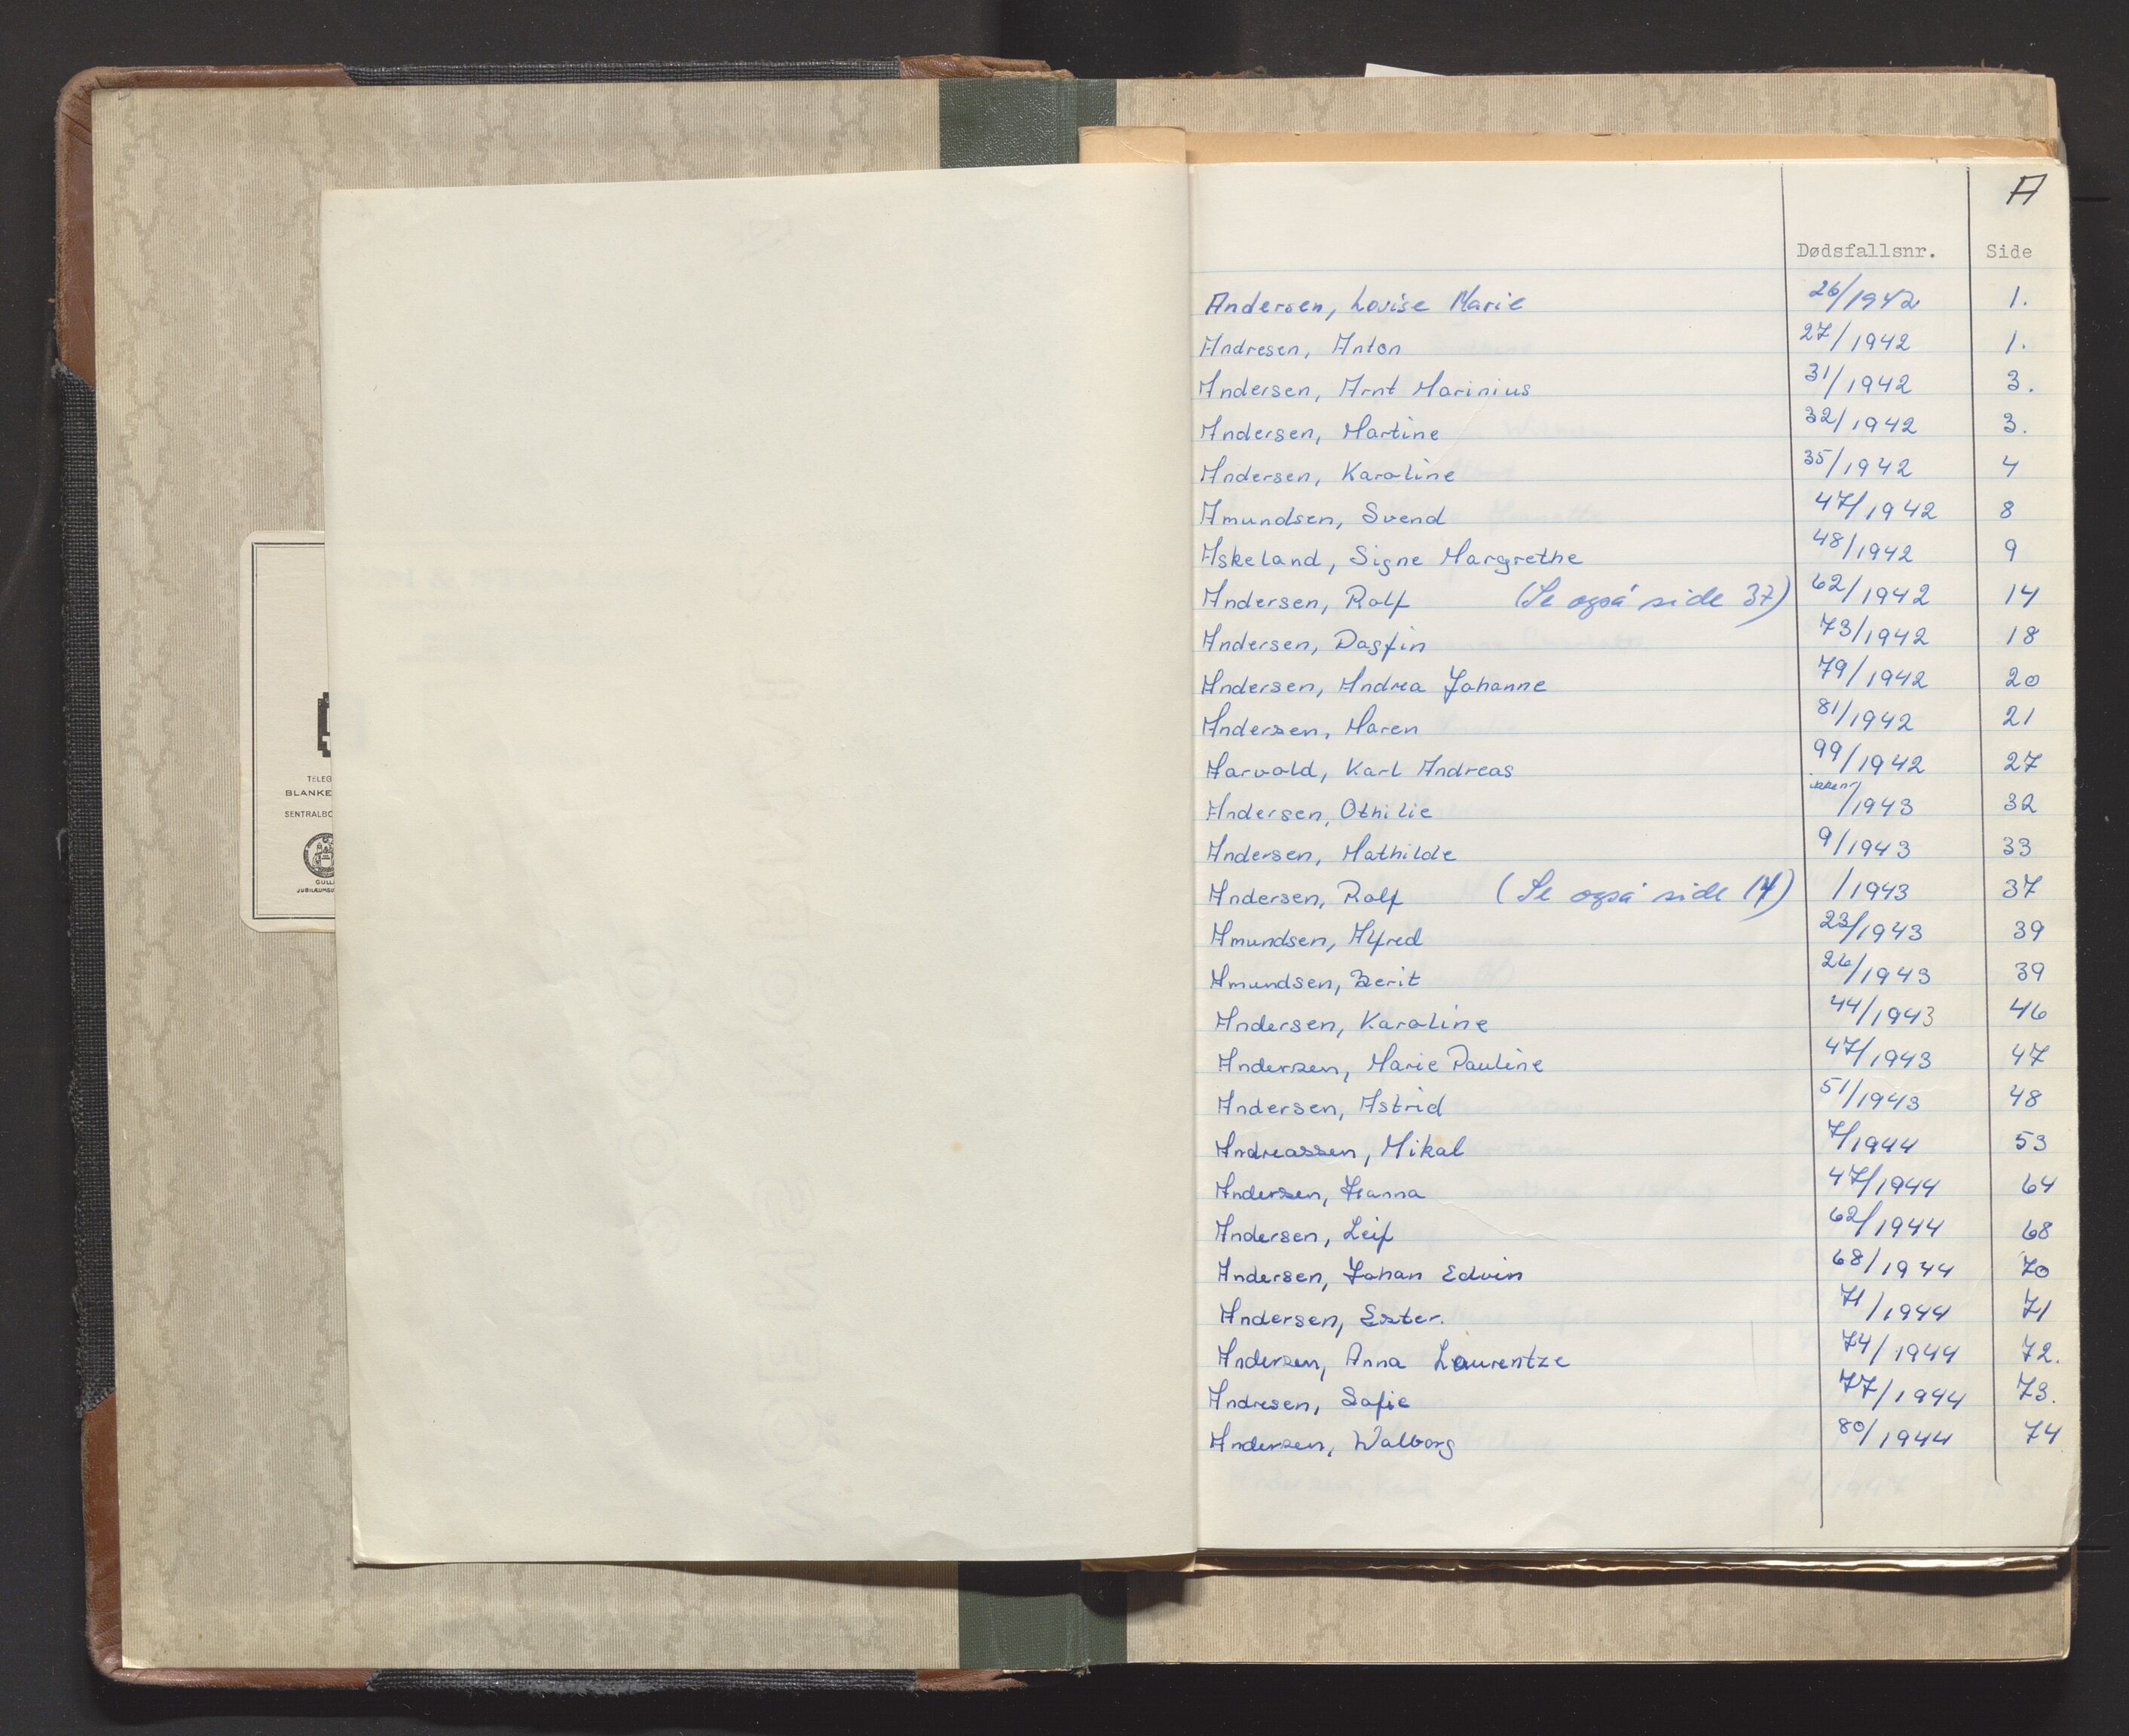 TELEG
BLANKE
SENTRALBO
GULL
JUBILÆUMSU
A
Dødsfallsnr. Side
Andersen, Lovise Marie 26/1942 1.
Andresen, Anton 27/1942 1.
Andersen, Arnt Marinius 31/1942 3.
Andersen, Martine 32/1942 3.
Andersen, Karoline 35/1942 4
Amundsen, Svend 47/1942 8
Askeland, Signe Margrethe 48/1942 9
Andersen, Rolf (Se også side 37) 62/1942 14
Andersen, Dagfin 73/1942 18
Andersen, Andrea Johanne 79/1942 20
Andersen, Maren 81/1942 21
Aarvold, Karl Andreas 99/1942 27
Andersen, Othilie /1943 32
Andersen, Mathilde 9/1943 33
Andersen, Rolf (Se også side 14) /1943 37
Amundsen, Alfred 23/1943 39
Amundsen, Berit 26/1943 39
Andersen, Karoline 44/1943 46
Andersen, Marie Pauline 47/1943 47
Andersen, Astrid 51/1943 48
Andreassen, Mikal 7/1944 53
Andersen, Hanna 47/1944 64
Andersen, Leif 62/1944 68
Andersen, Johan Edvin 68/1944 70
Andersen, Ester. 71/1944 71
Andersen, Anna Laurentze 74/1944 72.
Andresen, Sofie 77/1944 73.
Andersen, Walborg 80/1944 74